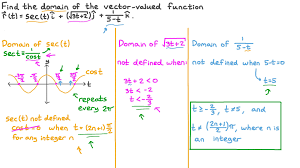 Find the domain of the vector-valued function
r⃗(t) = sec(t) î + √(3t+2) ĵ + 1/(5-t) k̂.
Domain of sec(t)
sec t = 1/cos t
cos t
repeats
every 2π
sec(t) not defined
cos t = 0 when t = (2n+1)π/2
for any integer n
Domain of √(3t+2)
not defined when
3t + 2 < 0
3t < -2
t < -2/3
Domain of 1/(5-t)
not defined when 5-t=0
t=5
t ≥ -2/3, t ≠ 5, and
t ≠ (2n+1)/2 π, where n is
an integer